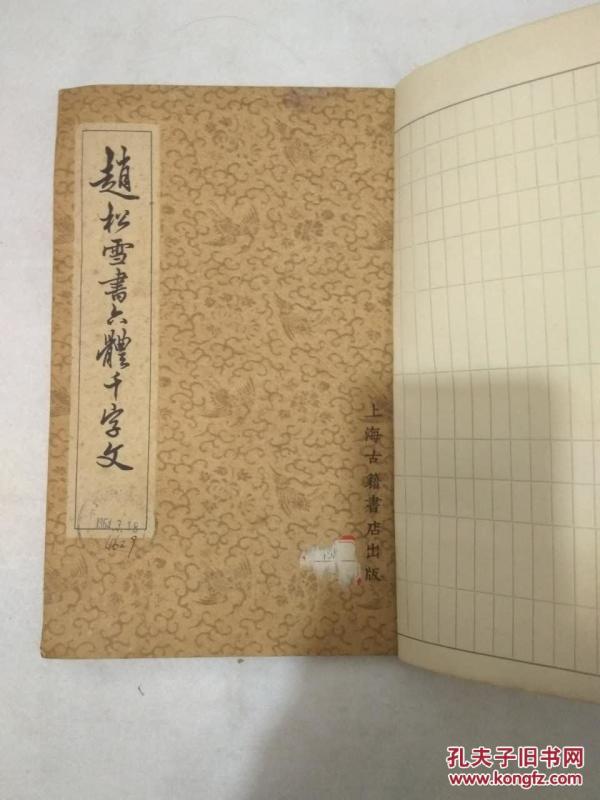 趙松雪書六體千字文
上海古籍書店出版
4629
孔夫子旧书网
www.kongfz.com